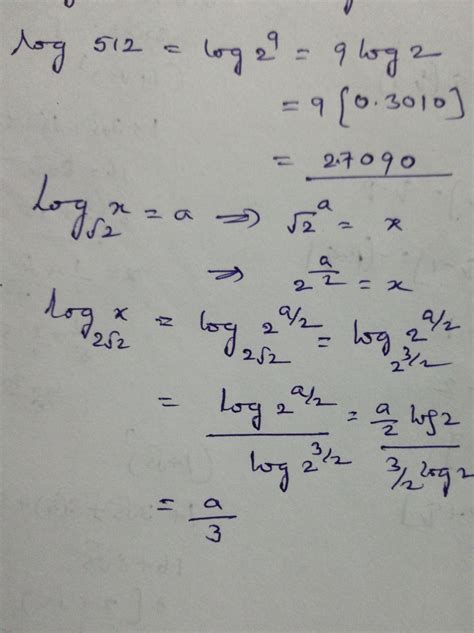 log 512 = log 2^9 = 9 log 2
= 9 [0.3010]
= 2.7090
log_√2 x = a ⇒ √2^a = x
⇒ 2^(a/2) = x
log_2√2 x = log_2√2 2^(a/2) = log_2^(3/2) 2^(a/2)
= log 2^(a/2) / log 2^(3/2) = a/2 log 2 / 3/2 log 2
= a/3